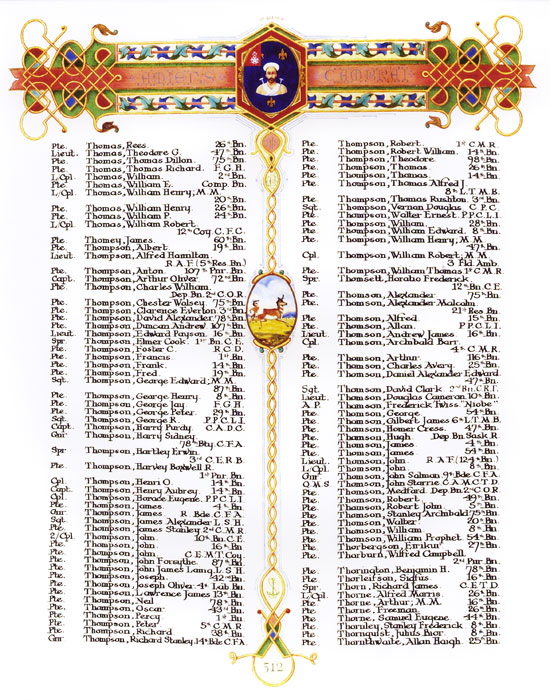 AMIENS CAMBRAI
Pte. Thomas, Rees. 26th Bn.
Lieut. Thomas, Theodore G. 47th Bn.
Pte. Thomas, Thomas Dillon. 75th Bn.
Pte. Thomas, Thomas Richard. F.G.H.
L/Cpl. Thomas, William. 2nd Bn.
Pte. Thomas, William E. Comp. Bn.
L/Cpl. Thomas, William Henry, M.M.
20th Bn.
Pte. Thomas, William Henry. 26th Bn.
Pte. Thomas, William P. 24th Bn.
L/Cpl. Thomas, William Robert.
12th Coy. C.F.C.
Pte. Thomey, James. 60th Bn.
Pte. Thompson, Albert. 19th Bn.
Lieut. Thompson, Alfred Hamilton.
R.A.F. (5th Res. Bn.)
Pte. Thompson, Anton. 107th Pnr. Bn.
Capt. Thompson, Arthur Oliver. 72nd Bn.
Pte. Thompson, Charles William.
Dep. Bn. 2nd C.O.R.
Pte. Thompson, Chester Wolsey. 75th Bn.
Pte. Thompson, Clarence Everton. 3rd Bn.
Pte. Thompson, David Alexander. 78th Bn.
Pte. Thompson, Duncan Andrew. 107th Bn.
Lieut. Thompson, Edward Payson. 16th Bn.
Spr. Thompson, Elmer Cook. 1st Bn. C.E.
Pte. Thompson, Foster C. R.C.D.
Pte. Thompson, Francis. 1st Bn.
Pte. Thompson, Frank. 14th Bn.
Pte. Thompson, Fred. 19th Bn.
Sgt. Thompson, George Edward, M.M.
87th Bn.
Pte. Thompson, George Henry. 8th Bn.
Pte. Thompson, George Jay. F.G.H.
Pte. Thompson, George Peter. 29th Bn.
Sgt. Thompson, George R. P.P.C.L.I.
Capt. Thompson, Harry Purdy. C.A.D.C.
Gnr. Thompson, Harry Sidney.
78th Bty. C.F.A.
Spr. Thompson, Hartley Erwin.
3rd C.E.R.B.
Pte. Thompson, Harvey Boxwell R.
1st Pnr. Bn.
Cpl. Thompson, Henri O. 14th Bn.
Capt. Thompson, Henry Aubrey. 14th Bn.
Cpl. Thompson, Horace Eugene. P.P.C.L.I.
Pte. Thompson, James. 4th Bn.
Gnr. Thompson, James. R. Bde. C.F.A.
Sgt. Thompson, James Alexander. L.S.H.
Pte. Thompson, James Stanley. 2nd C.M.R.
2/Cpl. Thompson, John. 10th Bn. C.E.
Pte. Thompson, John. 16th Bn.
Pte. Thompson, John. C.E.M.T. Coy.
Pte. Thompson, John Forsythe. 87th Bn.
Pte. Thompson, John James Laing. L.S.H.
Pte. Thompson, Joseph. 42nd Bn.
Pte. Thompson, Joseph Oliver. 4th Lab. Bn.
Pte. Thompson, Lawrence James. 13th Bn.
Pte. Thompson, Neil. 78th Bn.
Pte. Thompson, Oscar. 43rd Bn.
Pte. Thompson, Percy. 1st Bn.
Pte. Thompson, Peter. 5th C.M.R.
Pte. Thompson, Richard. 38th Bn.
Gnr. Thompson, Richard Stanley. 14th Bde. C.F.A.
Pte. Thompson, Robert. 1st C.M.R.
Pte. Thompson, Robert William. 14th Bn.
Pte. Thompson, Theodore. 98th Bn.
Pte. Thompson, Thomas. 26th Bn.
Pte. Thompson, Thomas. 14th Bn.
Pte. Thompson, Thomas Alfred J.
8th L.T.M.B.
Pte. Thompson, Thomas Rushton. 3rd Bn.
Sgt. Thompson, Vernon Douglas. C.P.C.
Pte. Thompson, Walter Ernest. P.P.C.L.I.
Pte. Thompson, William. 28th Bn.
Pte. Thompson, William Edward. 8th Bn.
Pte. Thompson, William Henry, M.M.
47th Bn.
Cpl. Thompson, William Robert, M.M.
3 Fld. Amb.
Pte. Thompson, William Thomas. 1st C.M.R.
Spr. Thomsett, Horatio Frederick.
12th Bn. C.E.
Pte. Thomson, Alexander. 75th Bn.
Pte. Thomson, Alexander Malcolm.
21st Res. Bn.
Pte. Thomson, Alfred. 15th Bn.
Pte. Thomson, Allan. P.P.C.L.I.
Lieut. Thomson, Andrew James. 16th Bn.
Cpl. Thomson, Archibald Barr.
4th C.M.R.
Pte. Thomson, Arthur. 116th Bn.
Pte. Thomson, Charles Avery. 25th Bn.
Pte. Thomson, Daniel Alexander Edward.
47th Bn.
Sgt. Thomson, David Clark. 2nd Bn. C.R.T.
Lieut. Thomson, Douglas Cameron. 10th Bn.
A.P. Thomson, Frederick Twiss. "Niobe"
Pte. Thomson, George. 54th Bn.
Pte. Thomson, Gilbert James. 6th L.T.M.B.
Pte. Thomson, Homer Cress. 47th Bn.
Pte. Thomson, Hugh. Dep. Bn. Sask. R.
Pte. Thomson, James. 4th Bn.
Pte. Thomson, James. 54th Bn.
Lieut. Thomson, John. R.A.F. (124th Bn.)
L/Cpl. Thomson, John. 8th Bn.
Gnr. Thomson, John Salmon. 9th Bde. C.F.A.
Q.M.S. Thomson, John Storrie. C.A.M.C.T.D.
Pte. Thomson, Medford. Dep. Bn. 2nd C.O.R.
Pte. Thomson, Robert. 49th Bn.
Pte. Thomson, Robert John. 5th Bn.
Pte. Thomson, Stanley Archibald. 75th Bn.
Pte. Thomson, Walter. 20th Bn.
Pte. Thomson, William. 8th Bn.
Pte. Thomson, William Prophet. 54th Bn.
Pte. Thorbergson, Erríkur. 27th Bn.
Pte. Thorburn, Wilfred Campbell.
2nd Pnr. Bn.
Pte. Thorington, Benjamin H. 78th Bn.
Pte. Thorleifson, Sigfus. 16th Bn.
Spr. Thorn, Richard James. C.E.T.D.
L/Cpl. Thorne, Alfred Morris. 26th Bn.
Pte. Thorne, Arthur, M.M. 16th Bn.
Pte. Thorne, Freeman. 26th Bn.
Pte. Thorne, Samuel Eugene. 44th Bn.
Pte. Thornley, Stanley Frederick. 8th Bn.
Pte. Thornquist, Julius Bior. 8th Bn.
Pte. Thornthwaite, Allan Haigh. 25th Bn.
512